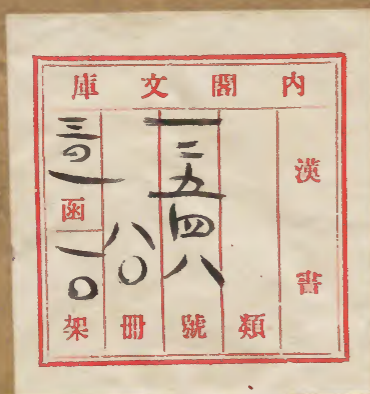 內閣文庫
漢書
類
一二五四八號
八〇冊
三四一函
一〇架